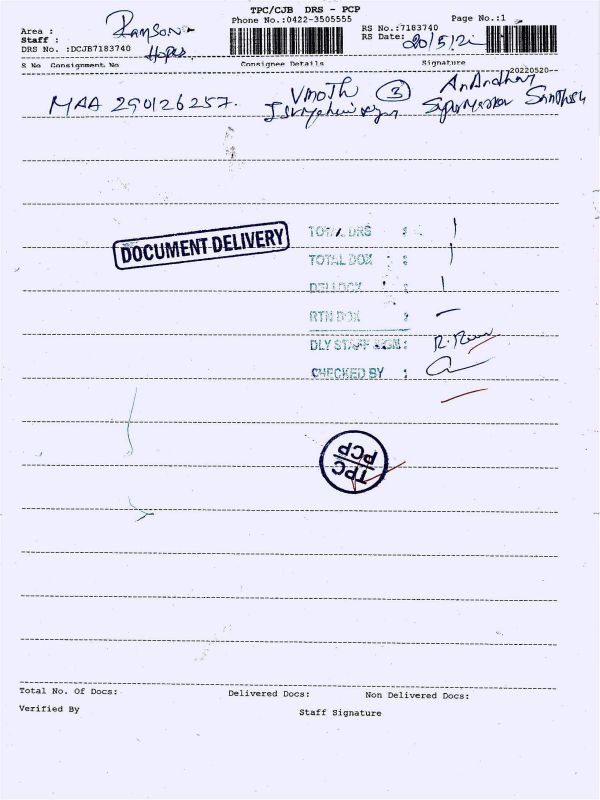 TPC/CJB DRS - PCP
Phone No.:0422-3505555
Page No.:1
Area :
Ramson
RS No.:7183740
Staff :
RS Date: 20/5/22
DRS No. :DCJB7183740
Hopes
S No Consignment No Consignee Details Signature
20220520--
MAA 290126257. Vinoth (3) Anandhan
Supervisor Santhosh
DOCUMENT DELIVERY
TOTAL DRS : 1
TOTAL DOX : 1
DEL DOX 1
RTN DOX : -
DLY STAFF SIGN:
CHECKED BY :
TPC
PCP
Total No. Of Docs: Delivered Docs: Non Delivered Docs:
Verified By
Staff Signature